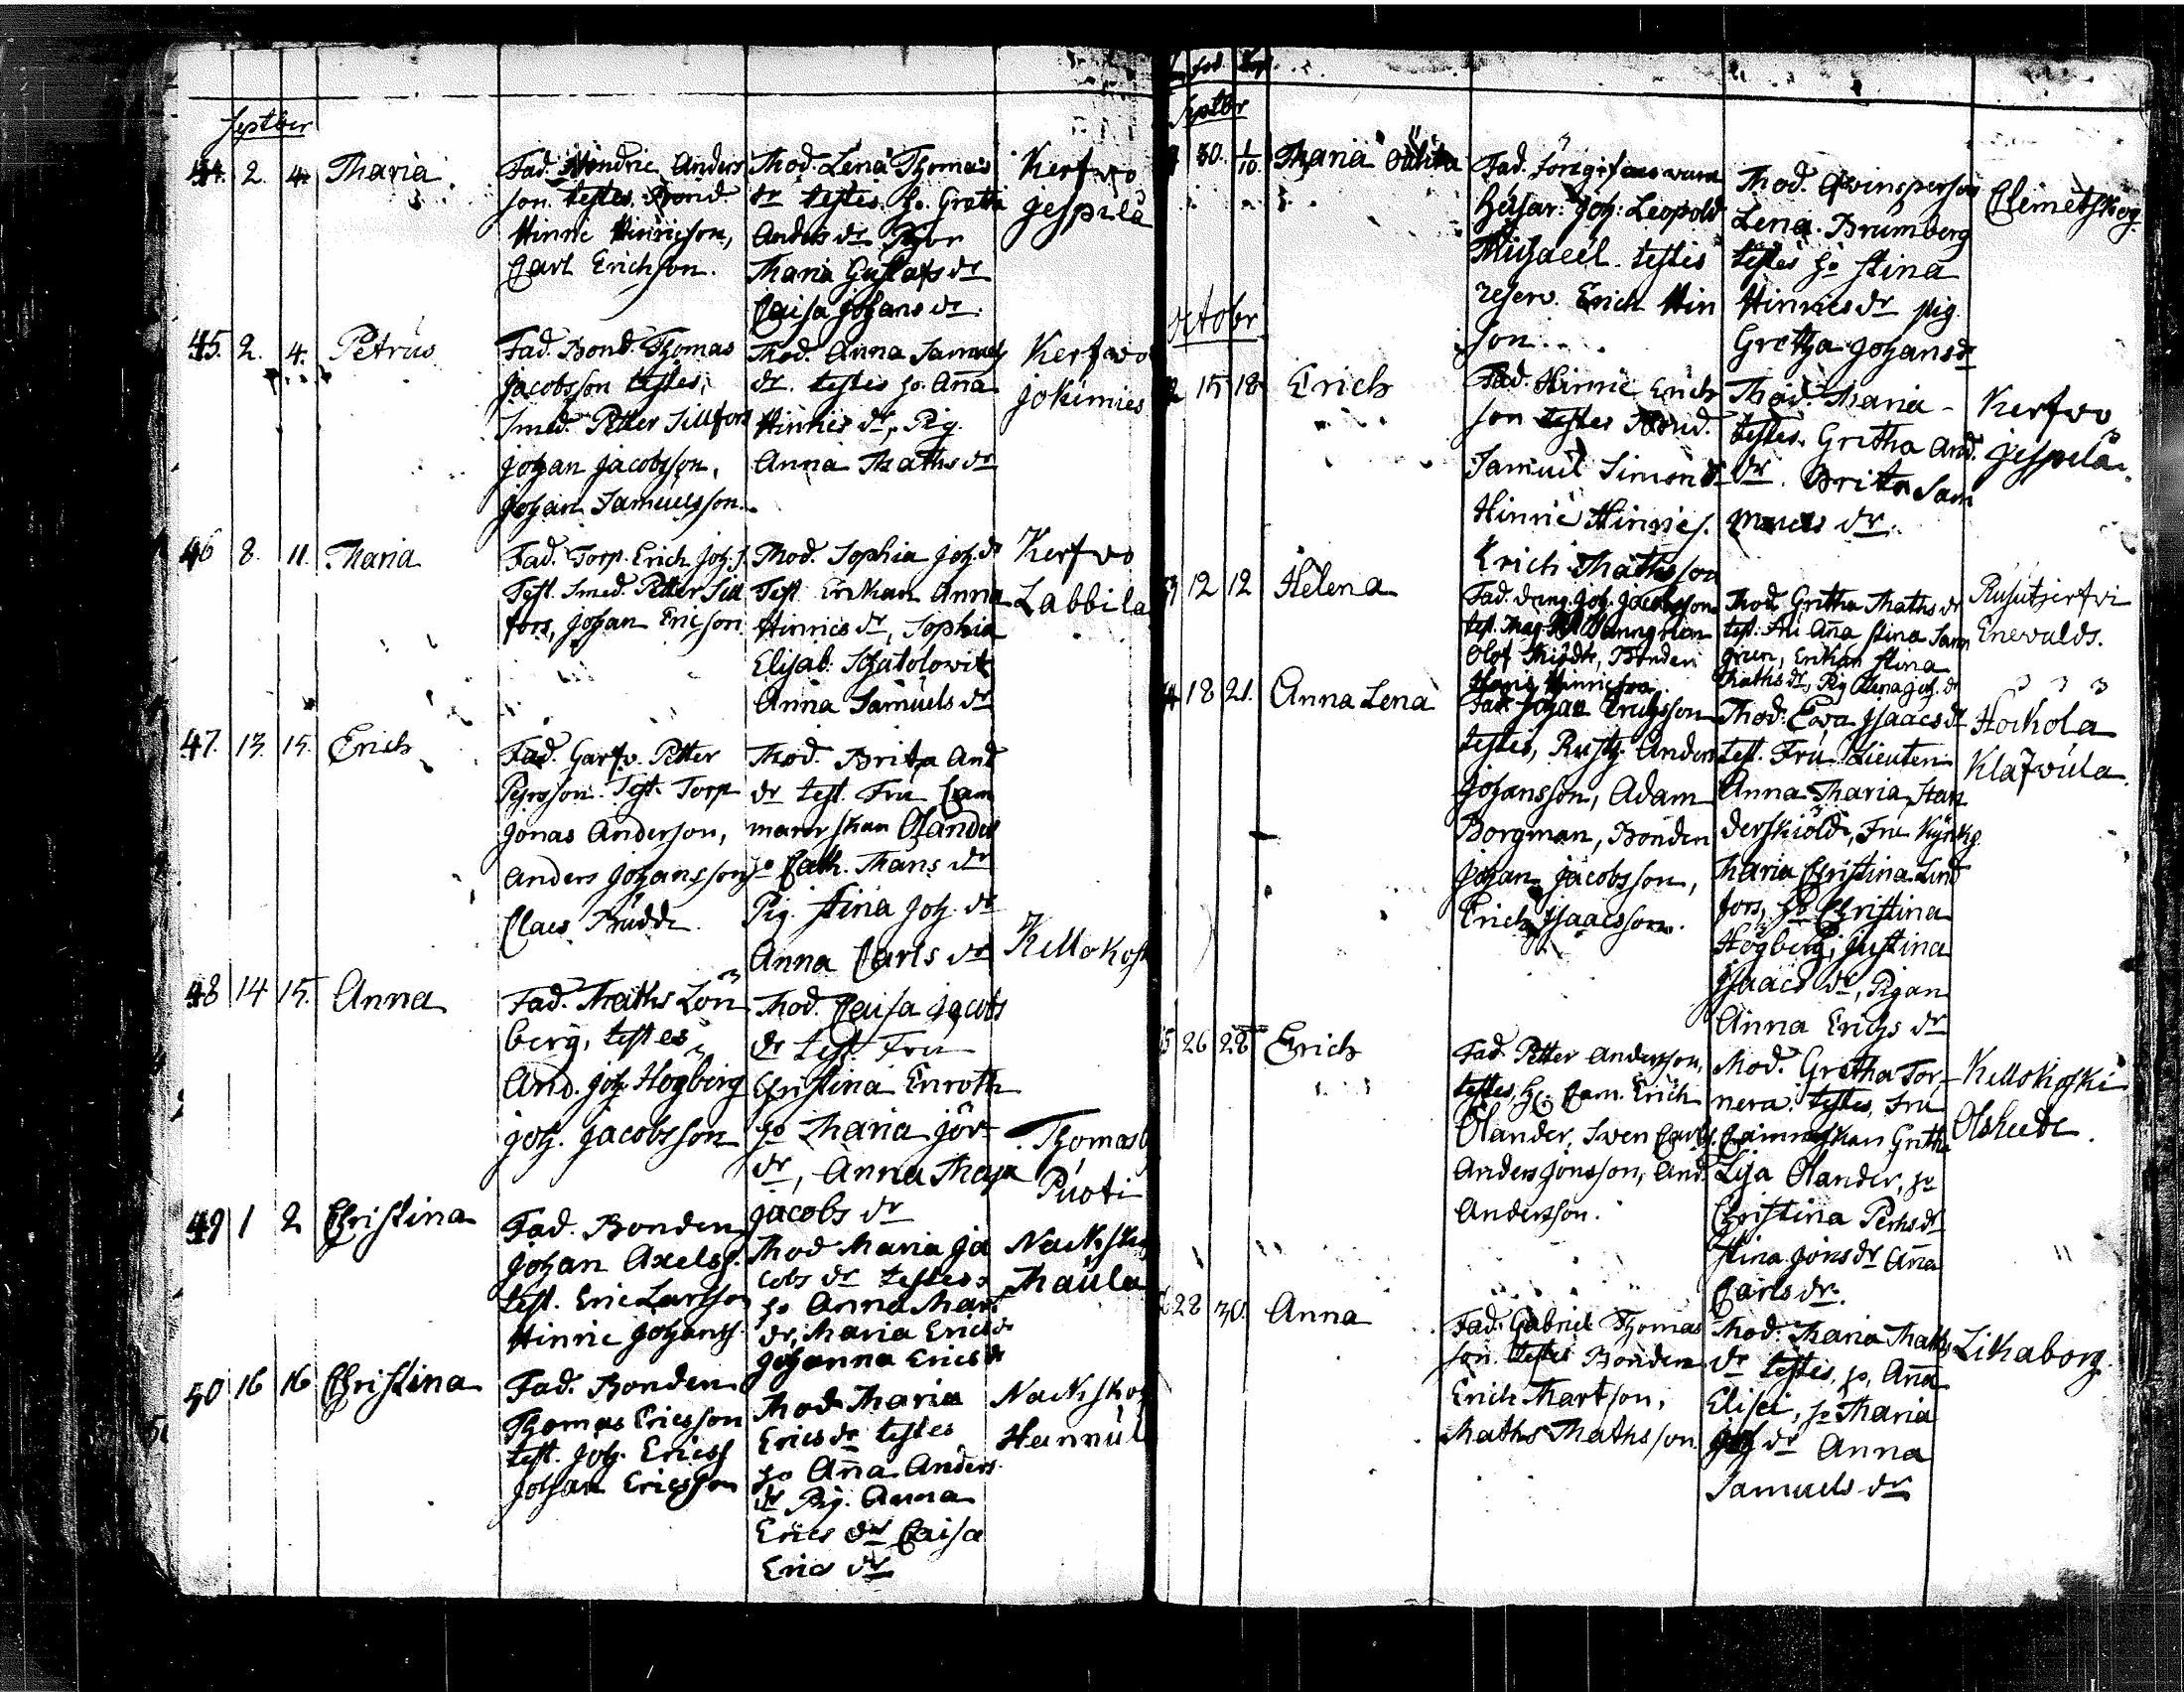 Septber
44. 2. 4. Maria
Fad. Hindric Anders
son. testes. Bond.
Hinric Hinricson,
Carl Erichson.
Mod. Lena Thomas
dr testes. H:o Greta
Anders dr
Maria Gustafs dr
Caisa Johans dr.
Kerfvo
Jespila
45. 2. 4. Petrus
Fad. Bond. Thomas
Jacobsson testes,
Smed. Petter Sillfors
Johan Jacobsson,
Johan Samuelsson.
Mod. Anna Samuels
dr. testes ho. Aña
Hinrics dr, Pig.
Anna Maths dr
Kerfwo
Jokimies
46 8. 11. Maria
Fad. Torp. Erich Joh. s.
Test. Smed. Petter Sill
fors, Johan Ericson.
Mod. Sophia Joh. dr
Test. Enkan Anna
Hinrics dr, Sophia
Elisab:
Anna Samuels dr
Kerfwo
Labbila
47. 13. 15. Erich
Fad. Garfv. Petter
Test. Torp
Jonas Anderson,
Anders Johansson
Claes Budde.
Mod. Brita And
dr test. Fru Cam
marerskan Olander
ho Cath. Mans dr
Pig. Stina Joh. dr
Anna Carls dr
Kellokosk
48 14 15. Anna
Fad. Maths Lön
berg, testes,
And. Joh. Hogberg
Joh. Jacobsson
Mod. Caisa Jacobs
dr test. Fru
Christina Enroth
ho Maria Jör
dr, Anna Maja
Jacobs dr
Thomasb
Puoti
49 1 2 Christina
Fad. Bonden
Johan Axelss.
test. Eric Larsson
Hinric Johanss.
Mod Maria Ja
cobs dr testes,
ho Anna Mart
dr, Maria Erics dr
Johanna Erics dr
Nackskog
Maula
50 16 16 Christina
Fad. Bonden
Thomas Ericsson
test. Joh. Ericss
Johan Ericsson
Mod Maria
Erics dr testes
ho Aña Anders
dr Pig. Anna
Erics dr Caisa
Erics dr
Nackskog
Septbr
30. 1/10 Maria Ottilia
Fad. föregifves vara
Husar: Joh: Leopold
testes
reserv. Erich Hin
son.
Mod. Qwinsperson
Lena Brumberg
testes ho Stina
Hinrics dr pig.
Gretha Johans dr
Clemetskog.
Octobr
15 18 Erich
Fad. Hinric Erich
son testes Bond.
Samuel Simons
Hinric Hinrics.
Erich Mathsson
Mod. Maria
testes. Gretha And.
dr. Brita Sam
muels dr.
Kerfvo
Jespila.
12 12 Helena
Fad. dräng. Joh. Jacobsson
Olof Bonden
Hans Hinricson.
Mod. Gretha Maths dr
test. Fru Aña Stina
Enkan Stina
Maths dr, Pig Lena Joh. dr
Rusutjerfvi
Enevalds.
18 21. Anna Lena
Fad. Johan Erichsson
testes, Rusth. Anders
Johansson, Adam
Borgman, Bonden
Johan Jacobsson,
Erich Isaacsson.
Mod. Eva Isaacs dr
test. Fru Lieuten
Anna Maria Stan
derskiöld, Fru
Maria Christina Lind
fors, ho Christina
Högberg, Justina
Isaacs dr, Pigan
Anna Erichs dr
Hockola
Klafvula
26 28 Erich
Fad. Petter Andersson,
testes, Hr. Cam. Erich
Olander, Swen Carls.
Anders Jonsson, And.
Andersson.
Mod. Gretha Tor-
nera. testes, Fru
Camrerskan Gretha
Lisa Olander, ho
Christina Pehrs dr
Stina Jöns dr Aña
Carls dr.
Kellokoski
28 30. Anna
Fad. Gabriel Thomas
son. testes Bonden
Erich Martson,
Maths Mathsson
Mod. Maria Maths
dr testes, ho, Aña
Elisei, ho Maria
Joh dr Anna
Samuels dr
Likaborg.